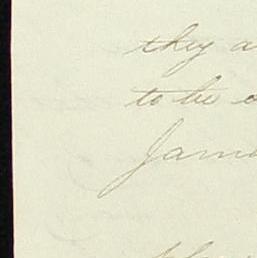 they a
to be o
Jame